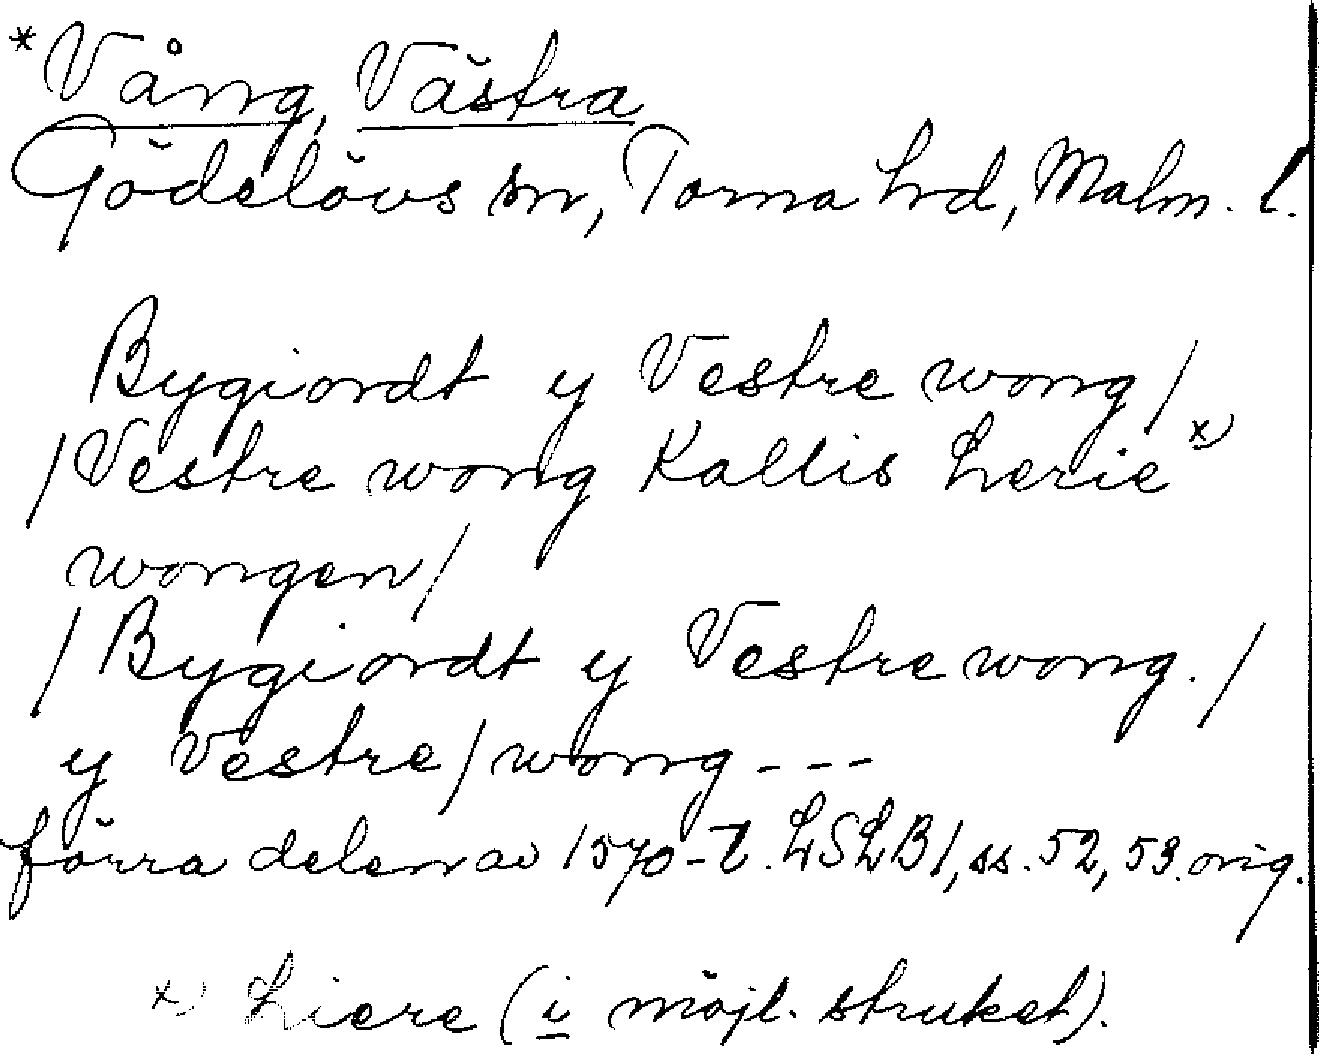 *Vång, Västra
Gödelövs sn, Torna hrd, Malm. l.
Bygiordt y Vestre wong/
/Vestre wong Kallis Lerie x)
wongen/
/Bygiordt y Vestre wong./
y Vestre/wong ---
förra delen av 1570-t. LSLB1, ss. 52, 53. orig.
x) Liere (i möjl. struket).